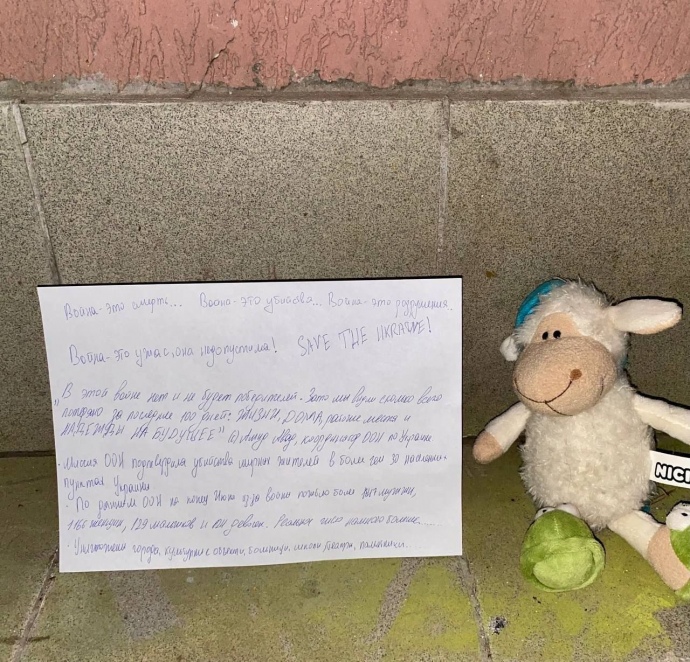 Война-это смерть... Война-это убийства... Война-это разрушения.
Война-это ужас, она недопустима! SAVE THE UKRAINE!
"В этой войне нет и не будет победителей. Зато мы видим сколько всего
потеряно за последние 100 дней: ЖИЗНИ, ДОМА, рабочие места и
НАДЕЖДЫ НА БУДУЩЕЕ" © Амин Авад, координатор ООН по Украине
· Миссия ООН подтвердила убийства мирных жителей в более чем 30 населенных
пунктах Украины
· По данным ООН по конец Июня из-за войны погибло более мужчин,
женщин, 129 мальчиков и девочек. Реальных число намного больше....
· Уничтожены города, культурные объекты, больницы, школы, театры, памятники....
NICI